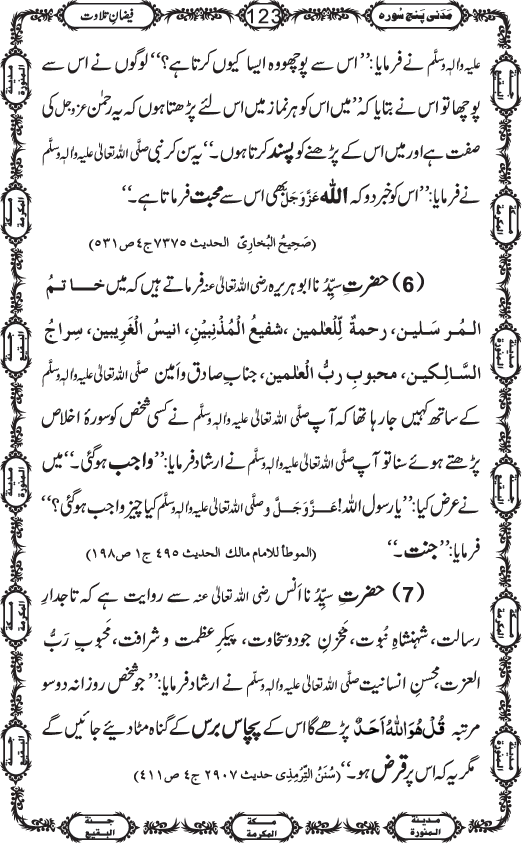 مَدَنی پنج سُورہ 123 فیضانِ تلاوت
علیہ والہٖ وسلَّم نے فرمایا: ’’اس سے پوچھو وہ ایسا کیوں کرتا ہے؟‘‘ لوگوں نے اس سے
پوچھا تو اس نے بتایا کہ ’’میں اس کو ہر نماز میں اس لئے پڑھتا ہوں کہ یہ رحمٰن عزوجل کی
صفت ہے اور میں اس کے پڑھنے کو پسند کرتا ہوں۔‘‘ یہ سن کر نبی صلَّی اللہ تعالیٰ علیہ والہٖ وسلَّم
نے فرمایا: ’’اس کو خبر دو کہ اللہ عَزَّوَجَلَّ بھی اس سے محبت فرماتا ہے۔‘‘
(صَحِیحُ البُخارِیّ الحدیث ٧٣٧٥ ج٤ ص ٥٣١)
(6) حضرتِ سیِّدُنا ابو ہریرہ رضی اللہ تعالیٰ عنہ فرماتے ہیں کہ میں خاتمُ
المُرسَلین، رحمۃٌ لِّلعٰلمین، شفیعُ المُذْنِبیْن، انیسُ الْغَرِیبین، سِراجُ
السَّالِکین، محبوبِ ربُّ الْعٰلمین، جنابِ صادق و امین صلَّی اللہ تعالیٰ علیہ والہٖ وسلَّم
کے ساتھ کہیں جا رہا تھا کہ آپ صلَّی اللہ تعالیٰ علیہ والہٖ وسلَّم نے کسی شخص کو سورۂ اخلاص
پڑھتے ہوئے سنا تو آپ صلَّی اللہ تعالیٰ علیہ والہٖ وسلَّم نے ارشاد فرمایا: ’’واجب ہو گئی۔‘‘ میں
نے عرض کیا: ’’یا رسول اللہ! عَزَّوَجَلَّ و صلَّی اللہ تعالیٰ علیہ والہٖ وسلَّم کیا چیز واجب ہو گئی؟‘‘
فرمایا: ’’جنت۔‘‘ (الموطأ للامام مالك الحدیث ٤٩٥ ج١ ص١٩٨)
(7) حضرتِ سیِّدُنا اَنس رضی اللہ تعالیٰ عنہ سے روایت ہے کہ تاجدارِ
رسالت، شہنشاہِ نُبوت، مَخْزنِ جود و سخاوت، پیکرِ عظمت و شرافت، مَحبوبِ رَبُّ
العزت، محسنِ انسانیت صلَّی اللہ تعالیٰ علیہ والہٖ وسلَّم نے ارشاد فرمایا: ’’جو شخص روزانہ دو سو
مرتبہ قُلْ هُوَ اللهُ اَحَدٌ پڑھے گا اس کے پچاس برس کے گناہ مٹا دیئے جائیں گے
مگر یہ کہ اس پر قرض ہو۔‘‘ (سُنَنُ التِّرْمِذِی حدیث ٢٩٠٧ ج٤ ص ٤١١)
مدینۃ المنورۃ
مکۃ المکرمۃ
جنۃ البقیع
مدینۃ المنورۃ
مکۃ المکرمۃ
جنۃ البقیع
جنۃ البقیع
مکۃ المکرمۃ
مدینۃ المنورۃ
جنۃ البقیع
مکۃ المکرمۃ
مدینۃ المنورۃ
مدینۃ المنورۃ مکۃ المکرمۃ جنۃ البقیع